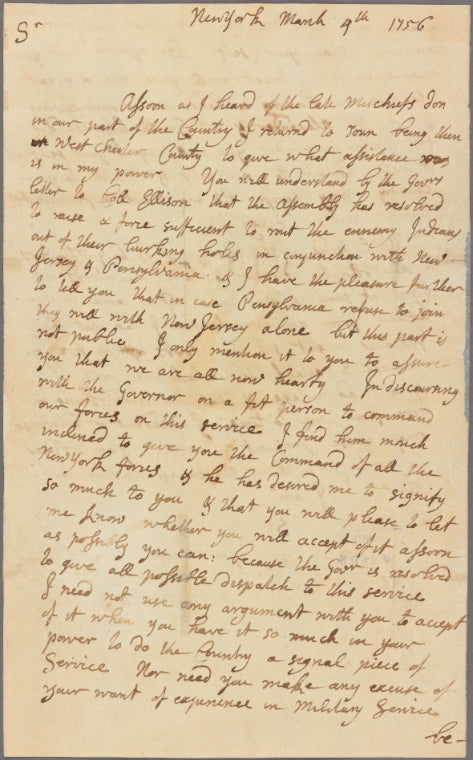 New York March 9th 1756
Sr
Assoon as I heard of the late Mischiefs don
in our part of the Country I returnd to Town being then
in West Chester County to give what assistance was
is in my power You will understand by the Govrs
letter to Coll Ellison that the Assembly has resolved
to raise a force sufficient to rout the ennemy Indians
out of their lurking holes in conjunction with New
Jersey & Pensylvania. & I have the pleasure further
to tell you that in case Pensylvania refuse to join
they will with New Jersey alone but this part is
not public I only mention it to you to assure
you that we are all now hearty In discoursing
with the Governor on a fit person to command
our forces on this service I find him much
inclined to give you the Command of all the
New York forces & he has desired me to signify
so much to you & that you will please to let
me know whether you will accept of it assoon
as possibly you can: because the Govr is resolved
to give all possible dispatch to this service
I need not use any argument with you to accept
of it when you have it so much in your
power to do the Country a signal piece of
Service Nor need you make any excuse of
your want of experience in Military Service
be-